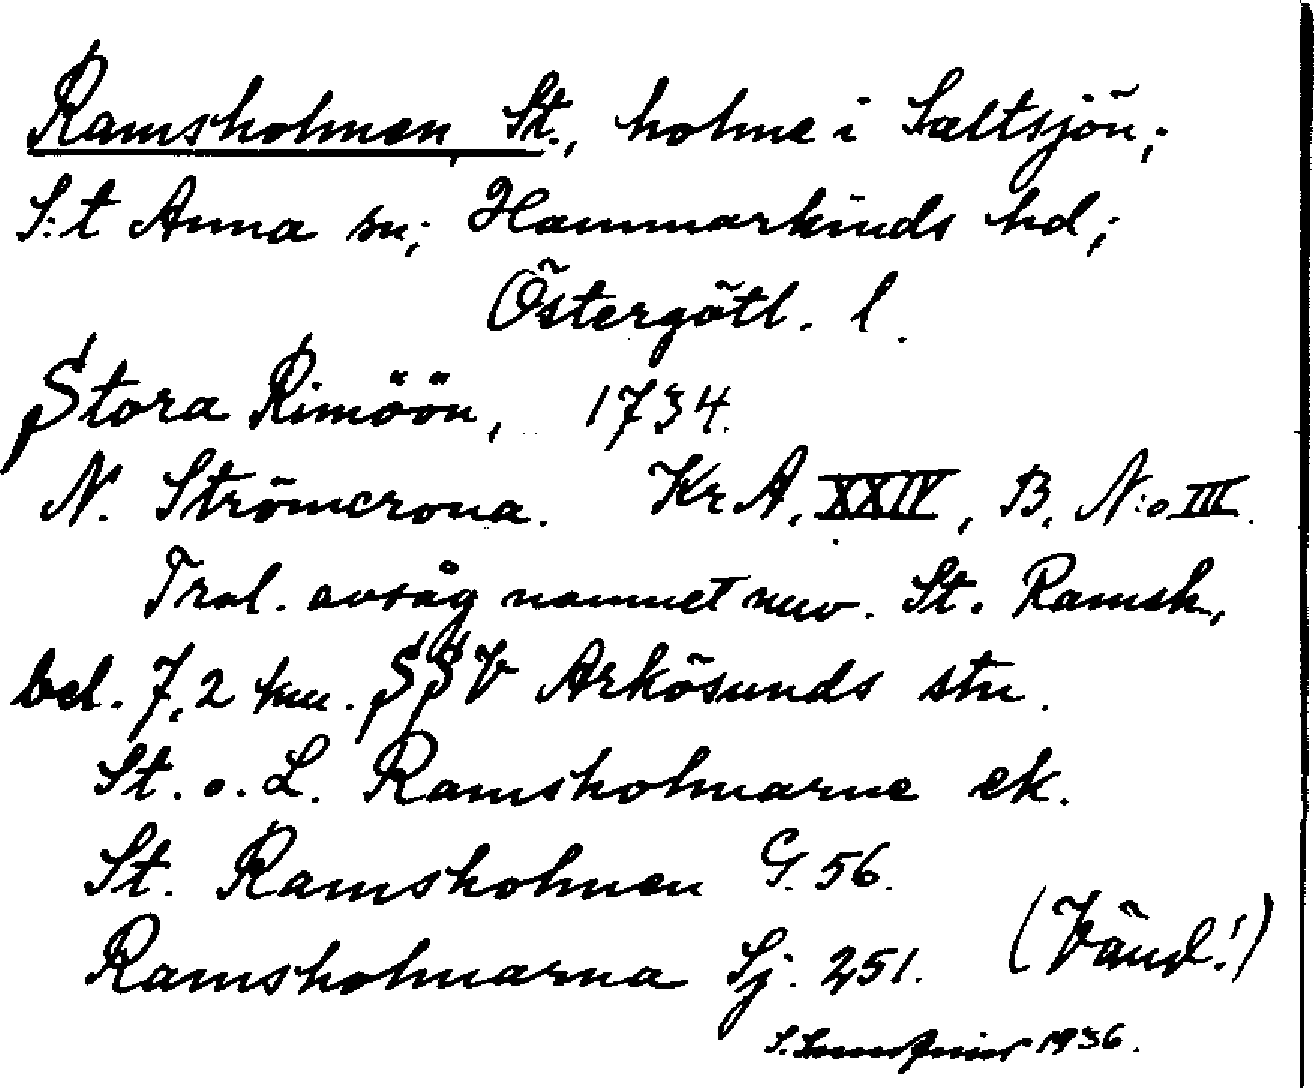 Ramsholmen, St., holme i Saltsjön;
S:t Anna sn; Hammarkinds hd;
Östergötl. l.
Stora Rimöön, 1734.
N. Strömcrona. Kr A, XXIV, B, N:o III.
Trol. avsåg namnet nuv. St. Ramsh,
bel. 7,2 km. SSV Arkösunds stn.
St. o. L. Ramsholmarne ek.
St. Ramsholmen G. 56.
Ramsholmarna Sj. 251. (Vänd!)
S. 1936.